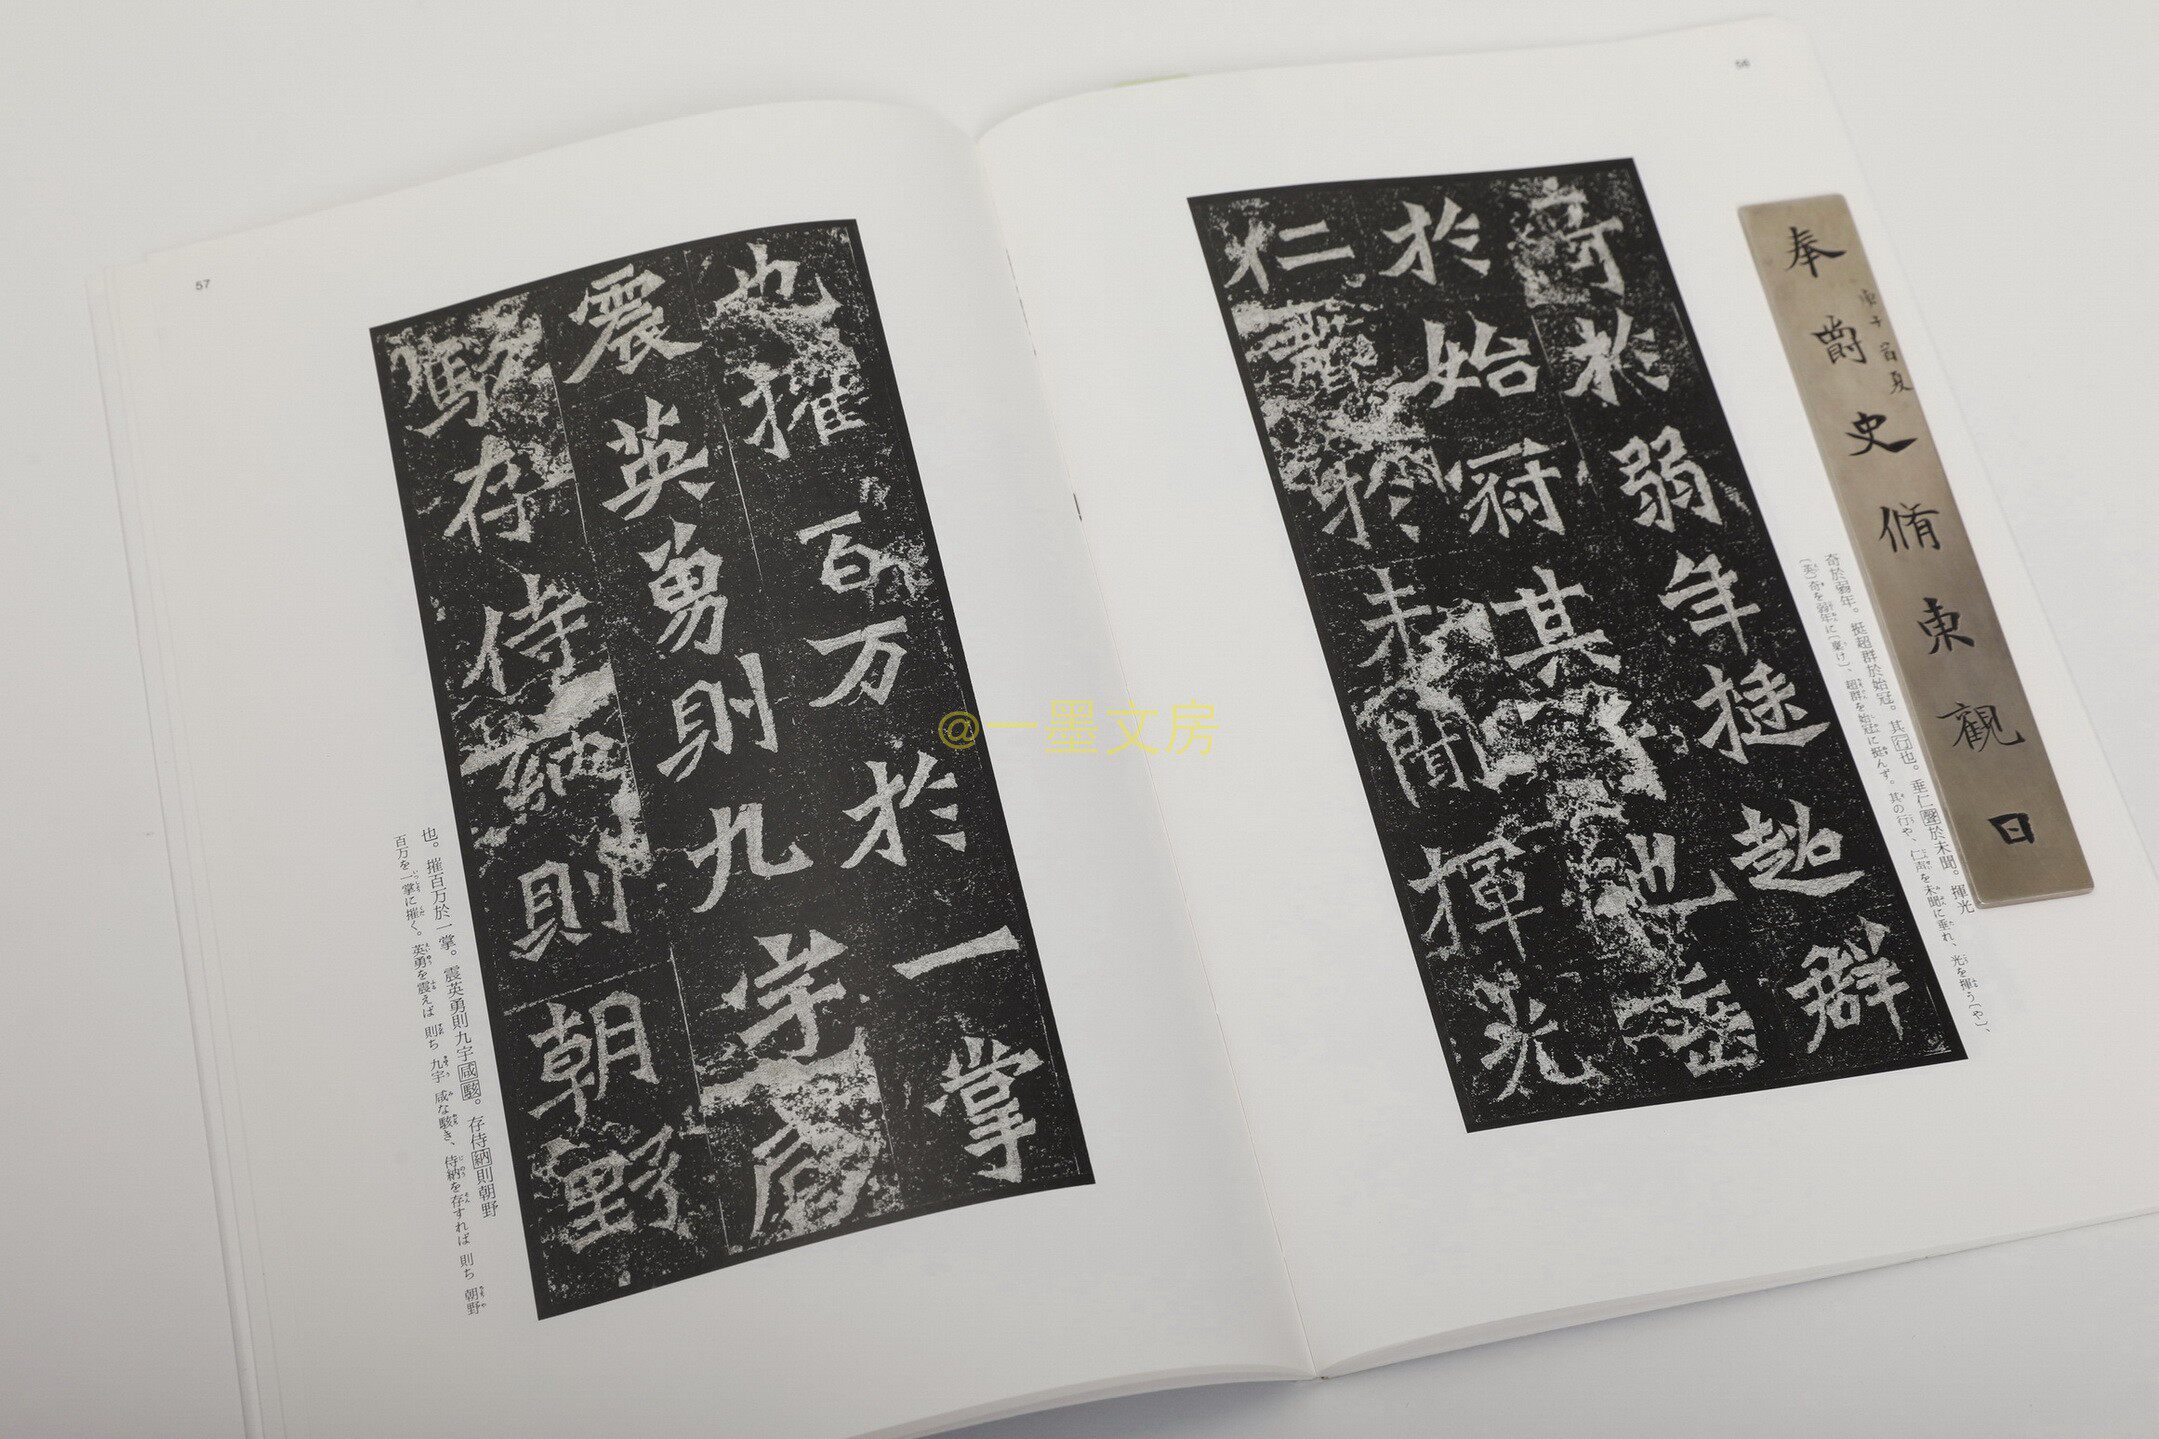 56
奉爵史脩東觀日
庚子首夏
奇於弱年挺超群
於始冠其行也垂
仁聲於未聞揮光
奇於弱年。挺超群於始冠。其行也。垂仁聲於未聞。揮光
(英)奇を弱年に(稟け)、超群を始冠に挺んず。其の行や、仁声を未聞に垂れ、光を揮う(や)、
57
也摧百万於一掌
震英勇則九宇咸
駭存侍納則朝野
也。摧百万於一掌。震英勇則九宇咸駭。存侍納則朝野
百万を一掌に摧く。英勇を震えば 則ち 九宇 咸な駭き、侍納を存すれば 則ち 朝野
@一墨文房